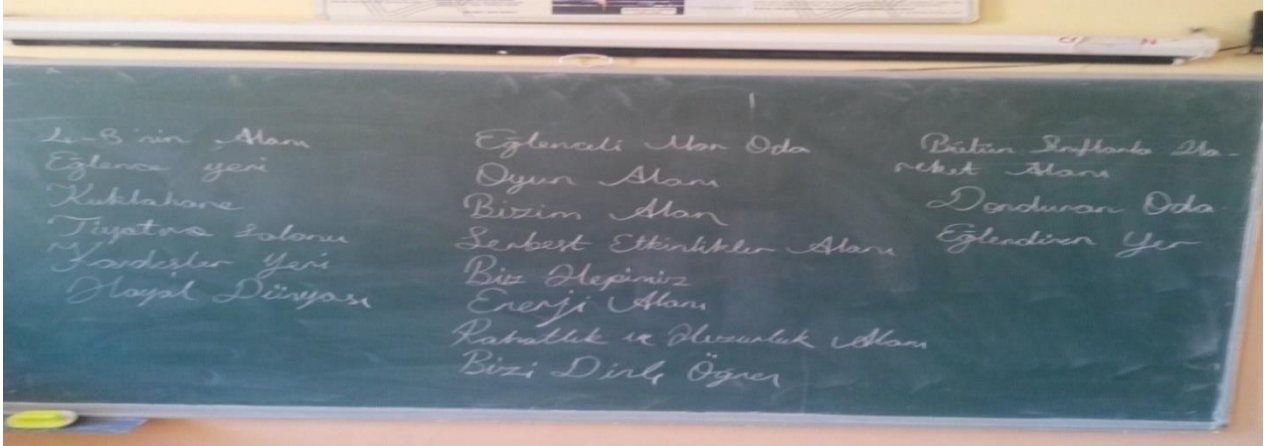 4-B'nin Alanı
Eğlence yeri
Kuklahane
Tiyatro Salonu
Kardeşler Yeri
Hayal Dünyası
Eğlenceli Mor Oda
Oyun Alanı
Bizim Alan
Serbest Etkinlikler Alanı
Biz Hepimiz
Enerji Alanı
Rahatlık ve Huzurluk Alanı
Bizi Dinle Öğren
Bütün Sınıflarla Ha-
reket Alanı
Donduran Oda
Eğlendiren Yer